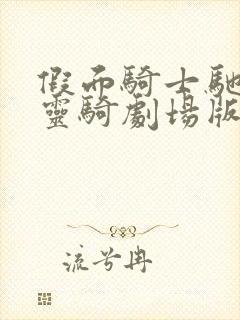 假面騎士馳
靈騎劇場版
流兮冉